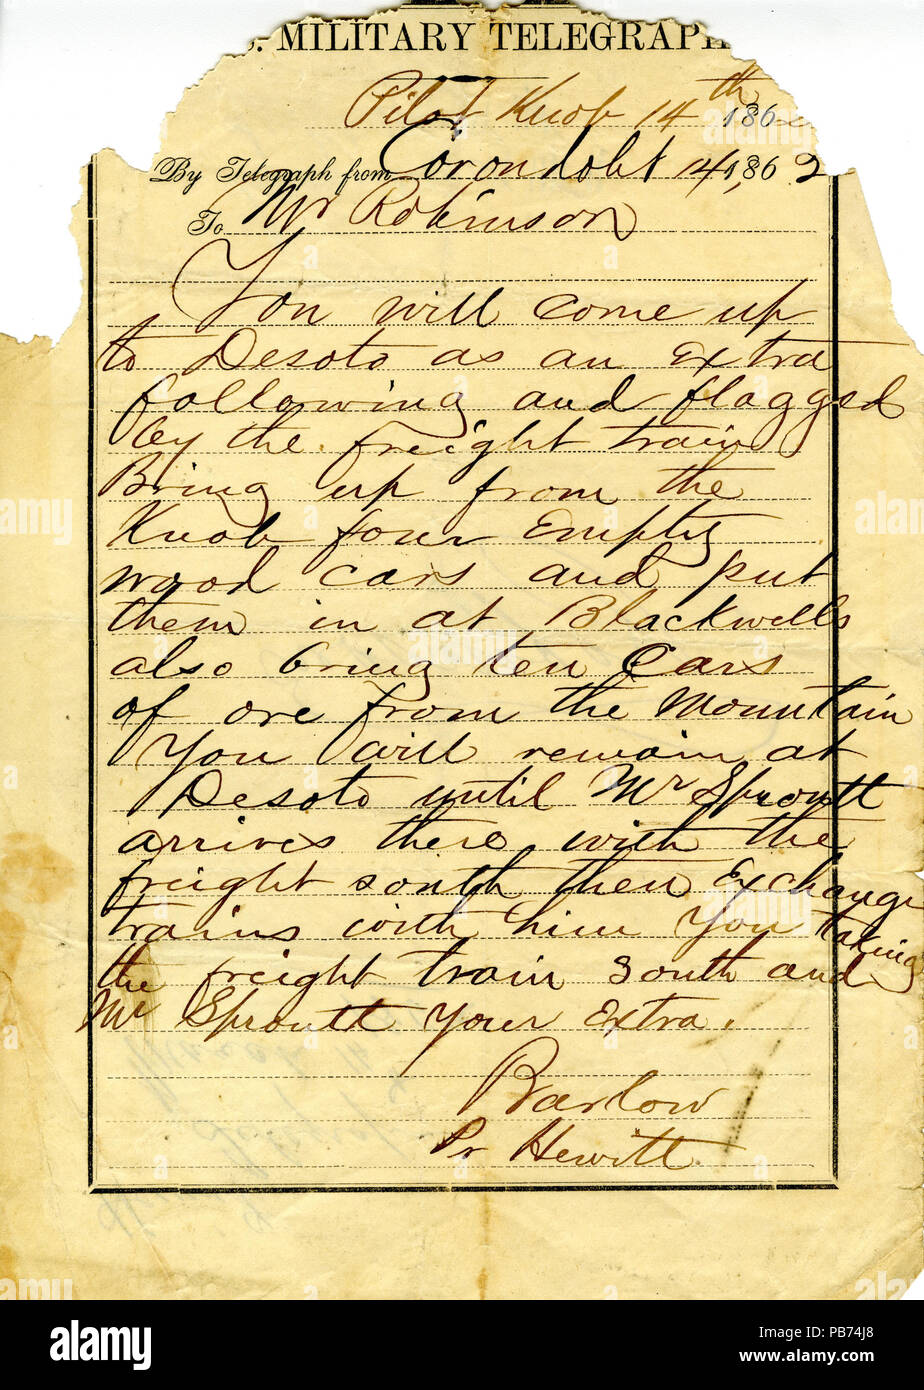 S. MILITARY TELEGRAPH
Pilot Knob 14th 1862
By Telegraph from Corondolet 14, 1862
To Mr Robinson
You will come up
to Desoto as an extra
following and flagged
by the freight train
Bring up from the
Knob four Empty
wood cars and put
them in at Blackwells
also bring ten Cars
of ore from the Mountain
You will remain at
Desoto until Mr Sproutt
arrives there with the
freight south then Exchange
trains with him You taking
the freight train South and
Mr Sproutt your Extra.
Barlow
Pr Hewitt
alamy
Image ID: PB74J8
www.alamy.com